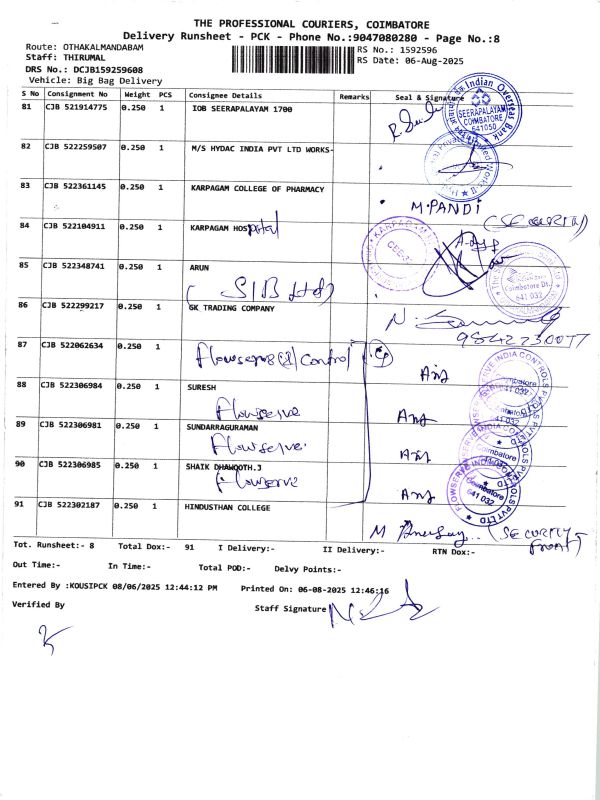 THE PROFESSIONAL COURIERS, COIMBATORE
Delivery Runsheet - PCK - Phone No.:9047080280 - Page No.:8
Route: OTHAKALMANDABAM
RS No.: 1592596
Staff: THIRUMAL
RS Date: 06-Aug-2025
DRS No.: DCJB159259608
Vehicle: Big Bag Delivery
S No Consignment No Weight PCS Consignee Details Remarks Seal & Signature
81 CJB 521914775 0.250 1 IOB SEERAPALAYAM 1700
Indian Overseas Bank
SEERAPALAYAM
COIMBATORE
641050
82 CJB 522259507 0.250 1 M/S HYDAC INDIA PVT LTD WORKS-
83 CJB 522361145 0.250 1 KARPAGAM COLLEGE OF PHARMACY
M.PANDI
(SECURITY)
84 CJB 522104911 0.250 1 KARPAGAM HOSpital
85 CJB 522348741 0.250 1 ARUN
(SIB Ltd)
Coimbatore Dt.
641 032
86 CJB 522299217 0.250 1 GK TRADING COMPANY
9842230077
87 CJB 522062634 0.250 1 Flowserve (I) Control
88 CJB 522306984 0.250 1 SURESH
Flowserve
89 CJB 522306981 0.250 1 SUNDARRAGURAMAN
Flowserve
90 CJB 522306985 0.250 1 SHAIK DHAWOOTH.J
Flowserve
FLOWSERVE INDIA CONTROLS PVT LTD
Coimbatore
641 032
91 CJB 522302187 0.250 1 HINDUSTHAN COLLEGE
(SECURITY
FRONT)
Tot. Runsheet:- 8 Total Dox:- 91 I Delivery:- II Delivery:- RTN Dox:-
Out Time:- In Time:- Total POD:- Delvy Points:-
Entered By :KOUSIPCK 08/06/2025 12:44:12 PM Printed On: 06-08-2025 12:46:16
Verified By Staff Signature